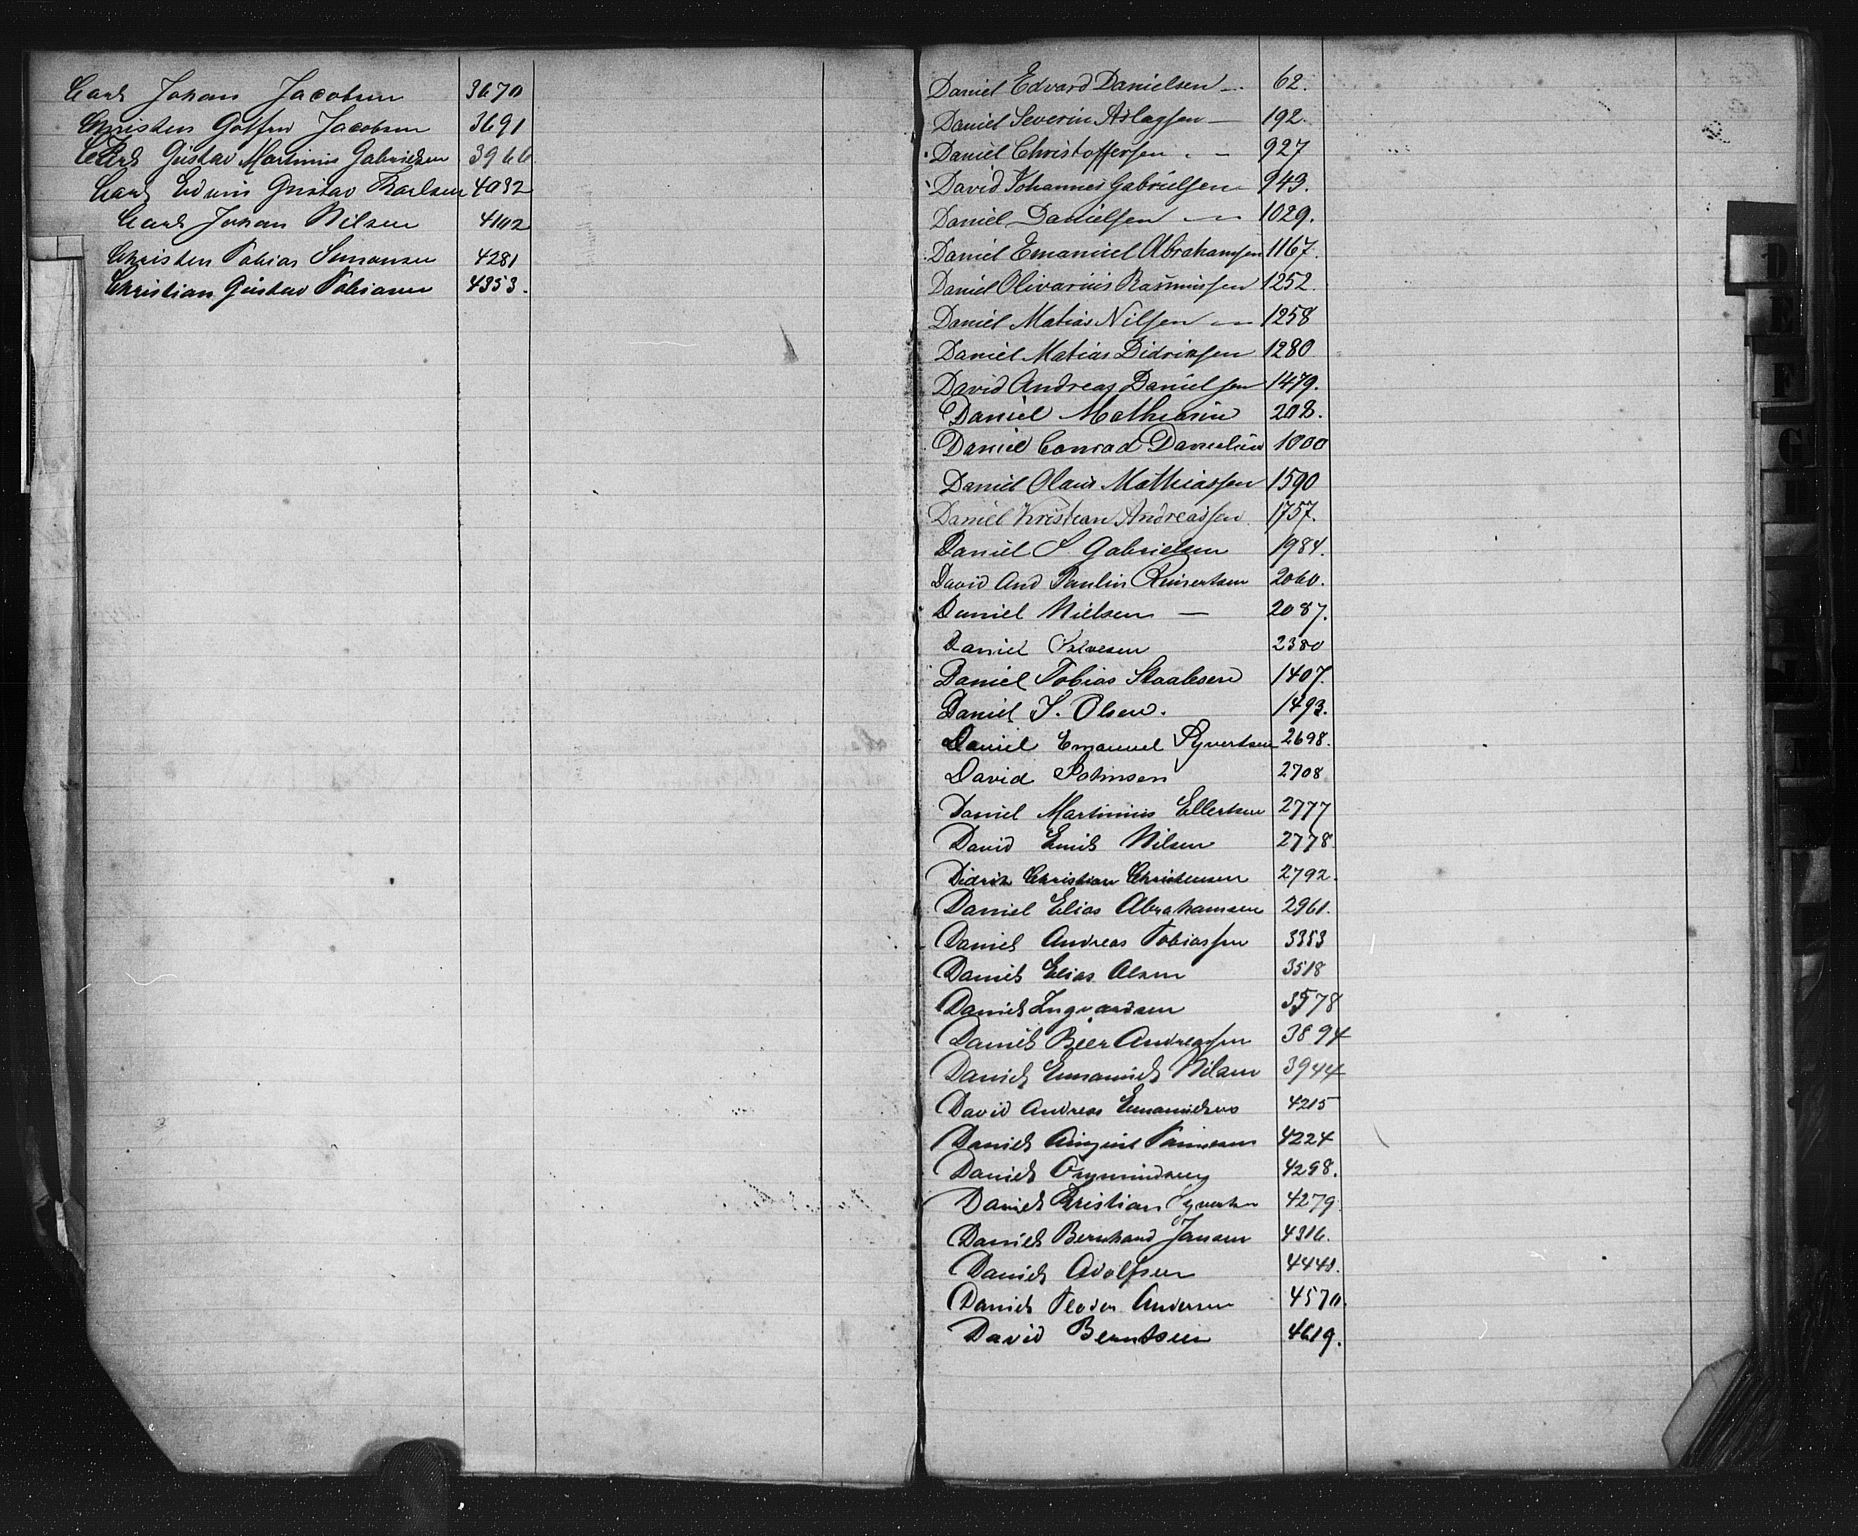 Carl Johan Jacobsen 3670
Christen Golfrid Jacobsen 3691
Carl Gustav Martinius Gabrielsen 3966
Carl Edwin Gustav Karlsen 4032
Carl Johan Nilsen 4102
Christen Tobias Simonsen 4281
Christian Gustav Tobiasen 4353.
Daniel Edvard Danielsen 62.
Daniel Severin Aslagsen — 192.
Daniel Christoffersen 927
David Johannes Gabrielsen 949.
Daniel Danielsen 1029.
Daniel Emanuel Abrahamsen 1167.
Daniel Olivarius Rasmussen 1252
Daniel Matias Nilsen 1258
Daniel Matias Didriksen 1280
David Andreas Danielsen 1479.
Daniel Mathiasen 208.
Daniel Conrad Danielsen 1000
Daniel Olaus Mathiassen 1590
Daniel Kristian Andreassen 1757.
Daniel S. Gabrielsen 1984.
David And Paulin Reinertsen 2060.
Daniel Nielsen — 2087.
Daniel Salvesen 2380
Daniel Tobias Staalesen 1407.
Daniel T. Olsen. 1493.
Daniel Emanuel Syvertsen 2698.
David Johnsen 2708
Daniel Martinius Ellertsen 2777
David Emil Nilsen 2778
Didrik Christian Christensen 2792.
Daniel Elias Abrahamsen 2961.
Daniel Andreas Tobiassen 3353
Daniel Elias Olsen 3518
Daniel Ingvardsen 3578
Daniel Beer Andreassen 3894
Daniel Emanuel Nilsen 3944
David Andreas Emanuelsen 4215
Daniel August Tønnesen 4224
Daniel Osmundsen 4298.
Daniel Kristian Syvertsen 4279
Daniel Bernhard Jansen 4316.
Daniel Adolfsen 4441.
Daniel Teodor Andersen 4570.
David Berntsen 4619.
D
E
F
G